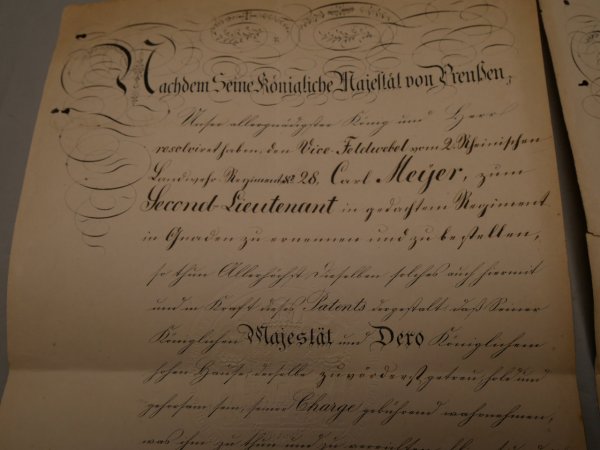 Nachdem Seine Königliche Majestät von Preußen,
Unser allergnädigster König und Herr
resolviret haben, den Vice-Feldwebel vom 2. Rheinischen
Landwehr Regiment № 28, Carl Meijer, zum
Second-Lieutenant in gedachtem Regiment
in Gnaden zu ernennen und zu bestellen,
so thun Allerhöchst Dieselben solches auch hiermit
und in Kraft dieses Patents dergestalt, daß Seiner
Königlichen Majestät und Dero Königlichem
hohen Hause derselbe zuvörderst getreu, hold und
gehorsam sein, seiner Charge gebührend wahrnehmen,
was ihm zu thun und zu verrichten